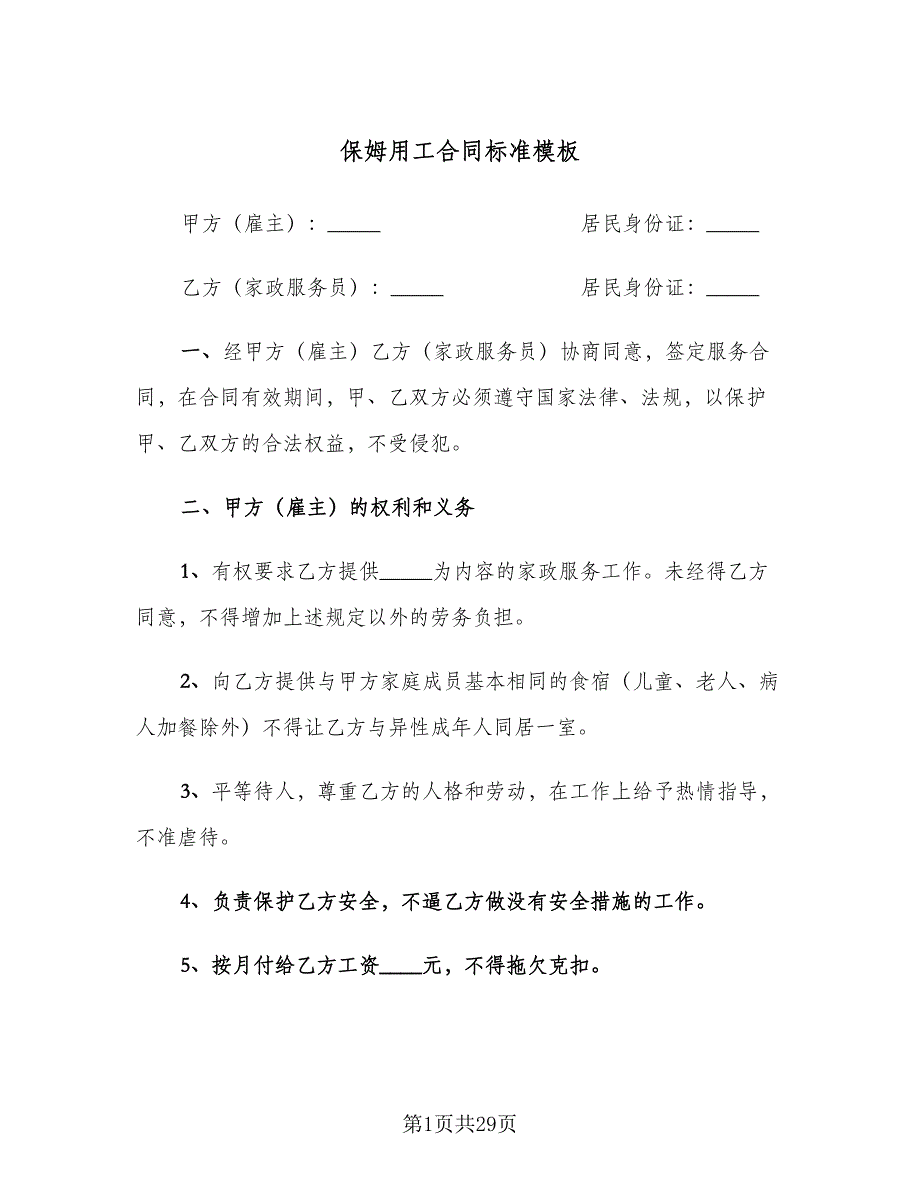 保姆用工合同标准模板
甲方（雇主）：_____ 居民身份证：_____
乙方（家政服务员）：_____ 居民身份证：_____
一、经甲方（雇主）乙方（家政服务员）协商同意，签定服务合
同，在合同有效期间，甲、乙双方必须遵守国家法律、法规，以保护
甲、乙双方的合法权益，不受侵犯。
二、甲方（雇主）的权利和义务
1、有权要求乙方提供_____为内容的家政服务工作。未经得乙方
同意，不得增加上述规定以外的劳务负担。
2、向乙方提供与甲方家庭成员基本相同的食宿（儿童、老人、病
人加餐除外）不得让乙方与异性成年人同居一室。
3、平等待人，尊重乙方的人格和劳动，在工作上给予热情指导，
不准虐待。
4、负责保护乙方安全，不逼乙方做没有安全措施的工作。
5、按月付给乙方工资____元，不得拖欠克扣。
第1页共29页